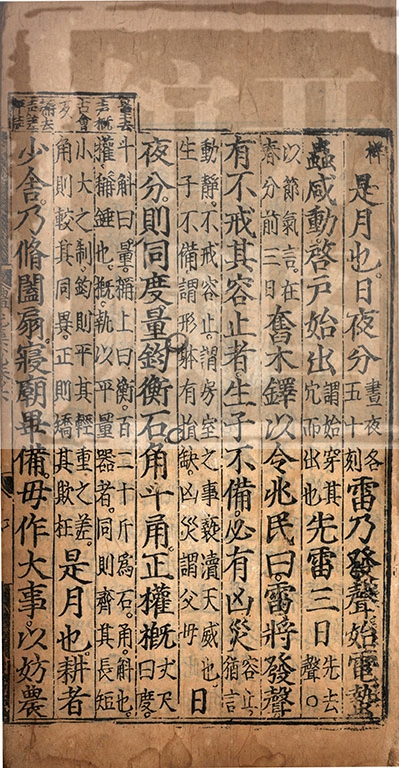 是月也。日夜分
晝夜各
五十刻
雷乃發聲。始電。蟄
蟲咸動。啓戶始出
謂始穿其
穴而出也
先雷三日
先去
聲○
以節氣言。在
春分前三日
奮木鐸以令兆民曰。雷將發聲
有不戒其容止者。生子不備。必有凶災
容止
猶言
動靜。不戒容止。謂房室之事。褻瀆天威也
生子不備。謂形躰有損缺。凶災。謂父母
日
夜分。則同度量。鈞衡石。角斗甬。正權概
丈尺
曰度。
斗斛曰量。稱上曰衡。百二十斤爲石。甬。斛也。
權。稱錘也。概。執以平量器者。同則齊其長短
小大之制。鈞則平其輕重之差。
角則較其同異。正則矯其欺枉
是月也。耕者
少舍。乃脩闔扇。寢廟畢備。毋作大事。以妨農
量去
聲概
古會
反
稱去
聲差